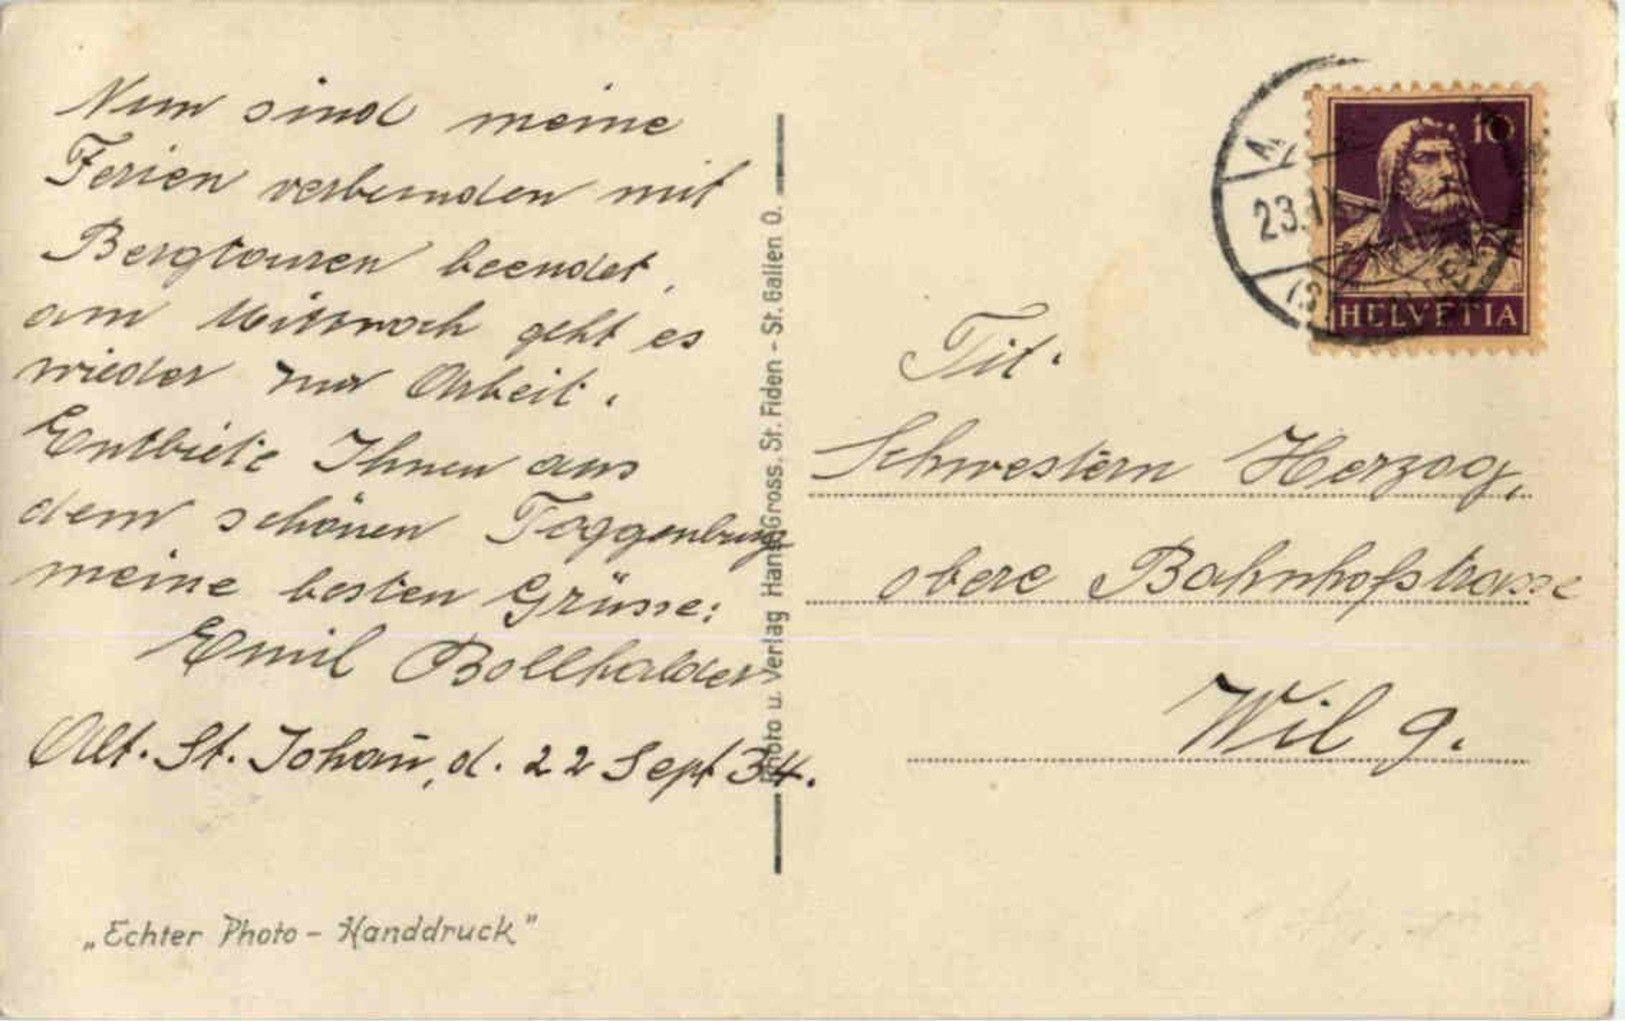 Nun sind meine
Ferien verbunden mit
Bergtouren beendet,
am Mittwoch geht es
wieder zur Arbeit.
Entbiete Ihnen aus
dem schönen Toggenburg
meine besten Grüsse:
Emil Bollhalder
Alt. St. Johañ, d. 22 Sept 34.
„Echter Photo - Handdruck"
Photo u. Verlag Hans Gross, St. Fiden - St. Gallen O.
10
HELVETIA
23.
Tit.
Schwestern Herzog,
obere Bahnhofstrasse
Wil g.